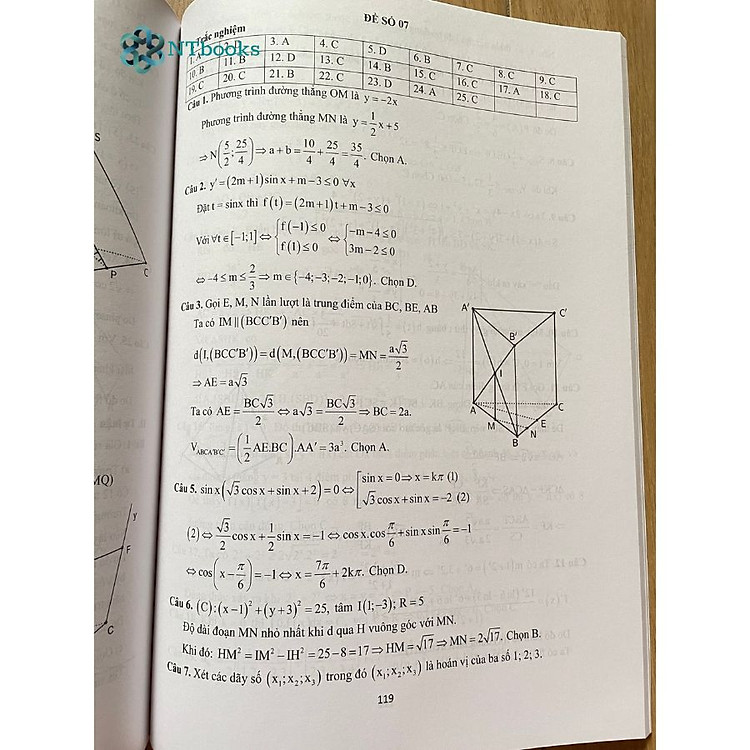 NTbooks
ĐỀ SỐ 07
Trắc nghiệm
1. A 3. A 4. C 5. D 6. B 7. C 8. C 9. C
10. B 11. B 12. D 13. C 14. B 15. C 16. C 17. A 18. C
19. C 20. C 21. B 22. C 23. D 24. A 25. C
Câu 1. Phương trình đường thẳng OM là y = −2x
Phương trình đường thẳng MN là y = 1/2 x + 5
⇒ N(5/2; 25/4) ⇒ a + b = 10/4 + 25/4 = 35/4. Chọn A.
Câu 2. y' = (2m+1)sin x + m − 3 ≤ 0 ∀x
Đặt t = sinx thì f(t) = (2m+1)t + m − 3 ≤ 0
Với ∀t ∈ [−1;1] ⇔ { f(−1) ≤ 0 ; f(1) ≤ 0 ⇔ { −m − 4 ≤ 0 ; 3m − 2 ≤ 0
⇔ −4 ≤ m ≤ 2/3 ⇒ m ∈ {−4;−3;−2;−1;0}. Chọn D.
Câu 3. Gọi E, M, N lần lượt là trung điểm của BC, BE, AB
Ta có IM ∥ (BCC'B') nên
d(I,(BCC'B')) = d(M,(BCC'B')) = MN = a√3/2
⇒ AE = a√3
Ta có AE = BC√3/2 ⇔ a√3 = BC√3/2 ⇒ BC = 2a.
V_ABCA'B'C' = (1/2 AE.BC).AA' = 3a³. Chọn A.
A' C' B' I A C M E N B
Câu 5. sin x(√3 cos x + sin x + 2) = 0 ⇔ [ sin x = 0 ⇒ x = kπ (1) ; √3 cos x + sin x = −2 (2)
(2) ⇔ √3/2 cos x + 1/2 sin x = −1 ⇔ cos x.cos π/6 + sin x sin π/6 = −1
⇔ cos(x − π/6) = −1 ⇔ x = 7π/6 + 2kπ. Chọn D.
Câu 6. (C): (x−1)² + (y+3)² = 25, tâm I(1;−3); R = 5
Độ dài đoạn MN nhỏ nhất khi d qua H vuông góc với MN.
Khi đó: HM² = IM² − IH² = 25 − 8 = 17 ⇒ HM = √17 ⇒ MN = 2√17. Chọn B.
Câu 7. Xét các dãy số (x₁;x₂;x₃) trong đó (x₁;x₂;x₃) là hoán vị của ba số 1; 2; 3.
119
S
P C
MQ)
y
F
C